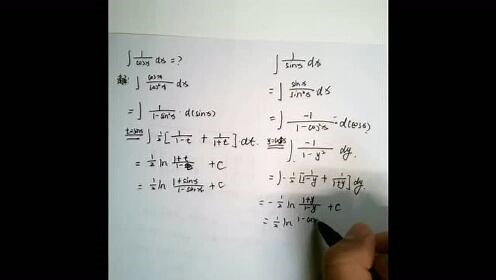 ∫ 1/cosx dx = ?
解: ∫ cosx/cos²x dx
= ∫ 1/(1-sin²x) d(sinx)
t=sinx ∫ ½[1/(1-t) + 1/(1+t)] dt.
= ½ ln (1+t)/(1-t) + C
= ½ ln (1+sinx)/(1-sinx) + C
∫ 1/sinx dx
= ∫ sinx/sin²x dx
= ∫ -1/(1-cos²x) d(cosx)
y=cosx ∫ -1/(1-y²) dy.
= ∫ -½[1/(1-y) + 1/(1+y)] dy.
= -½ ln (1+y)/(1-y) + C
= ½ ln 1-cos